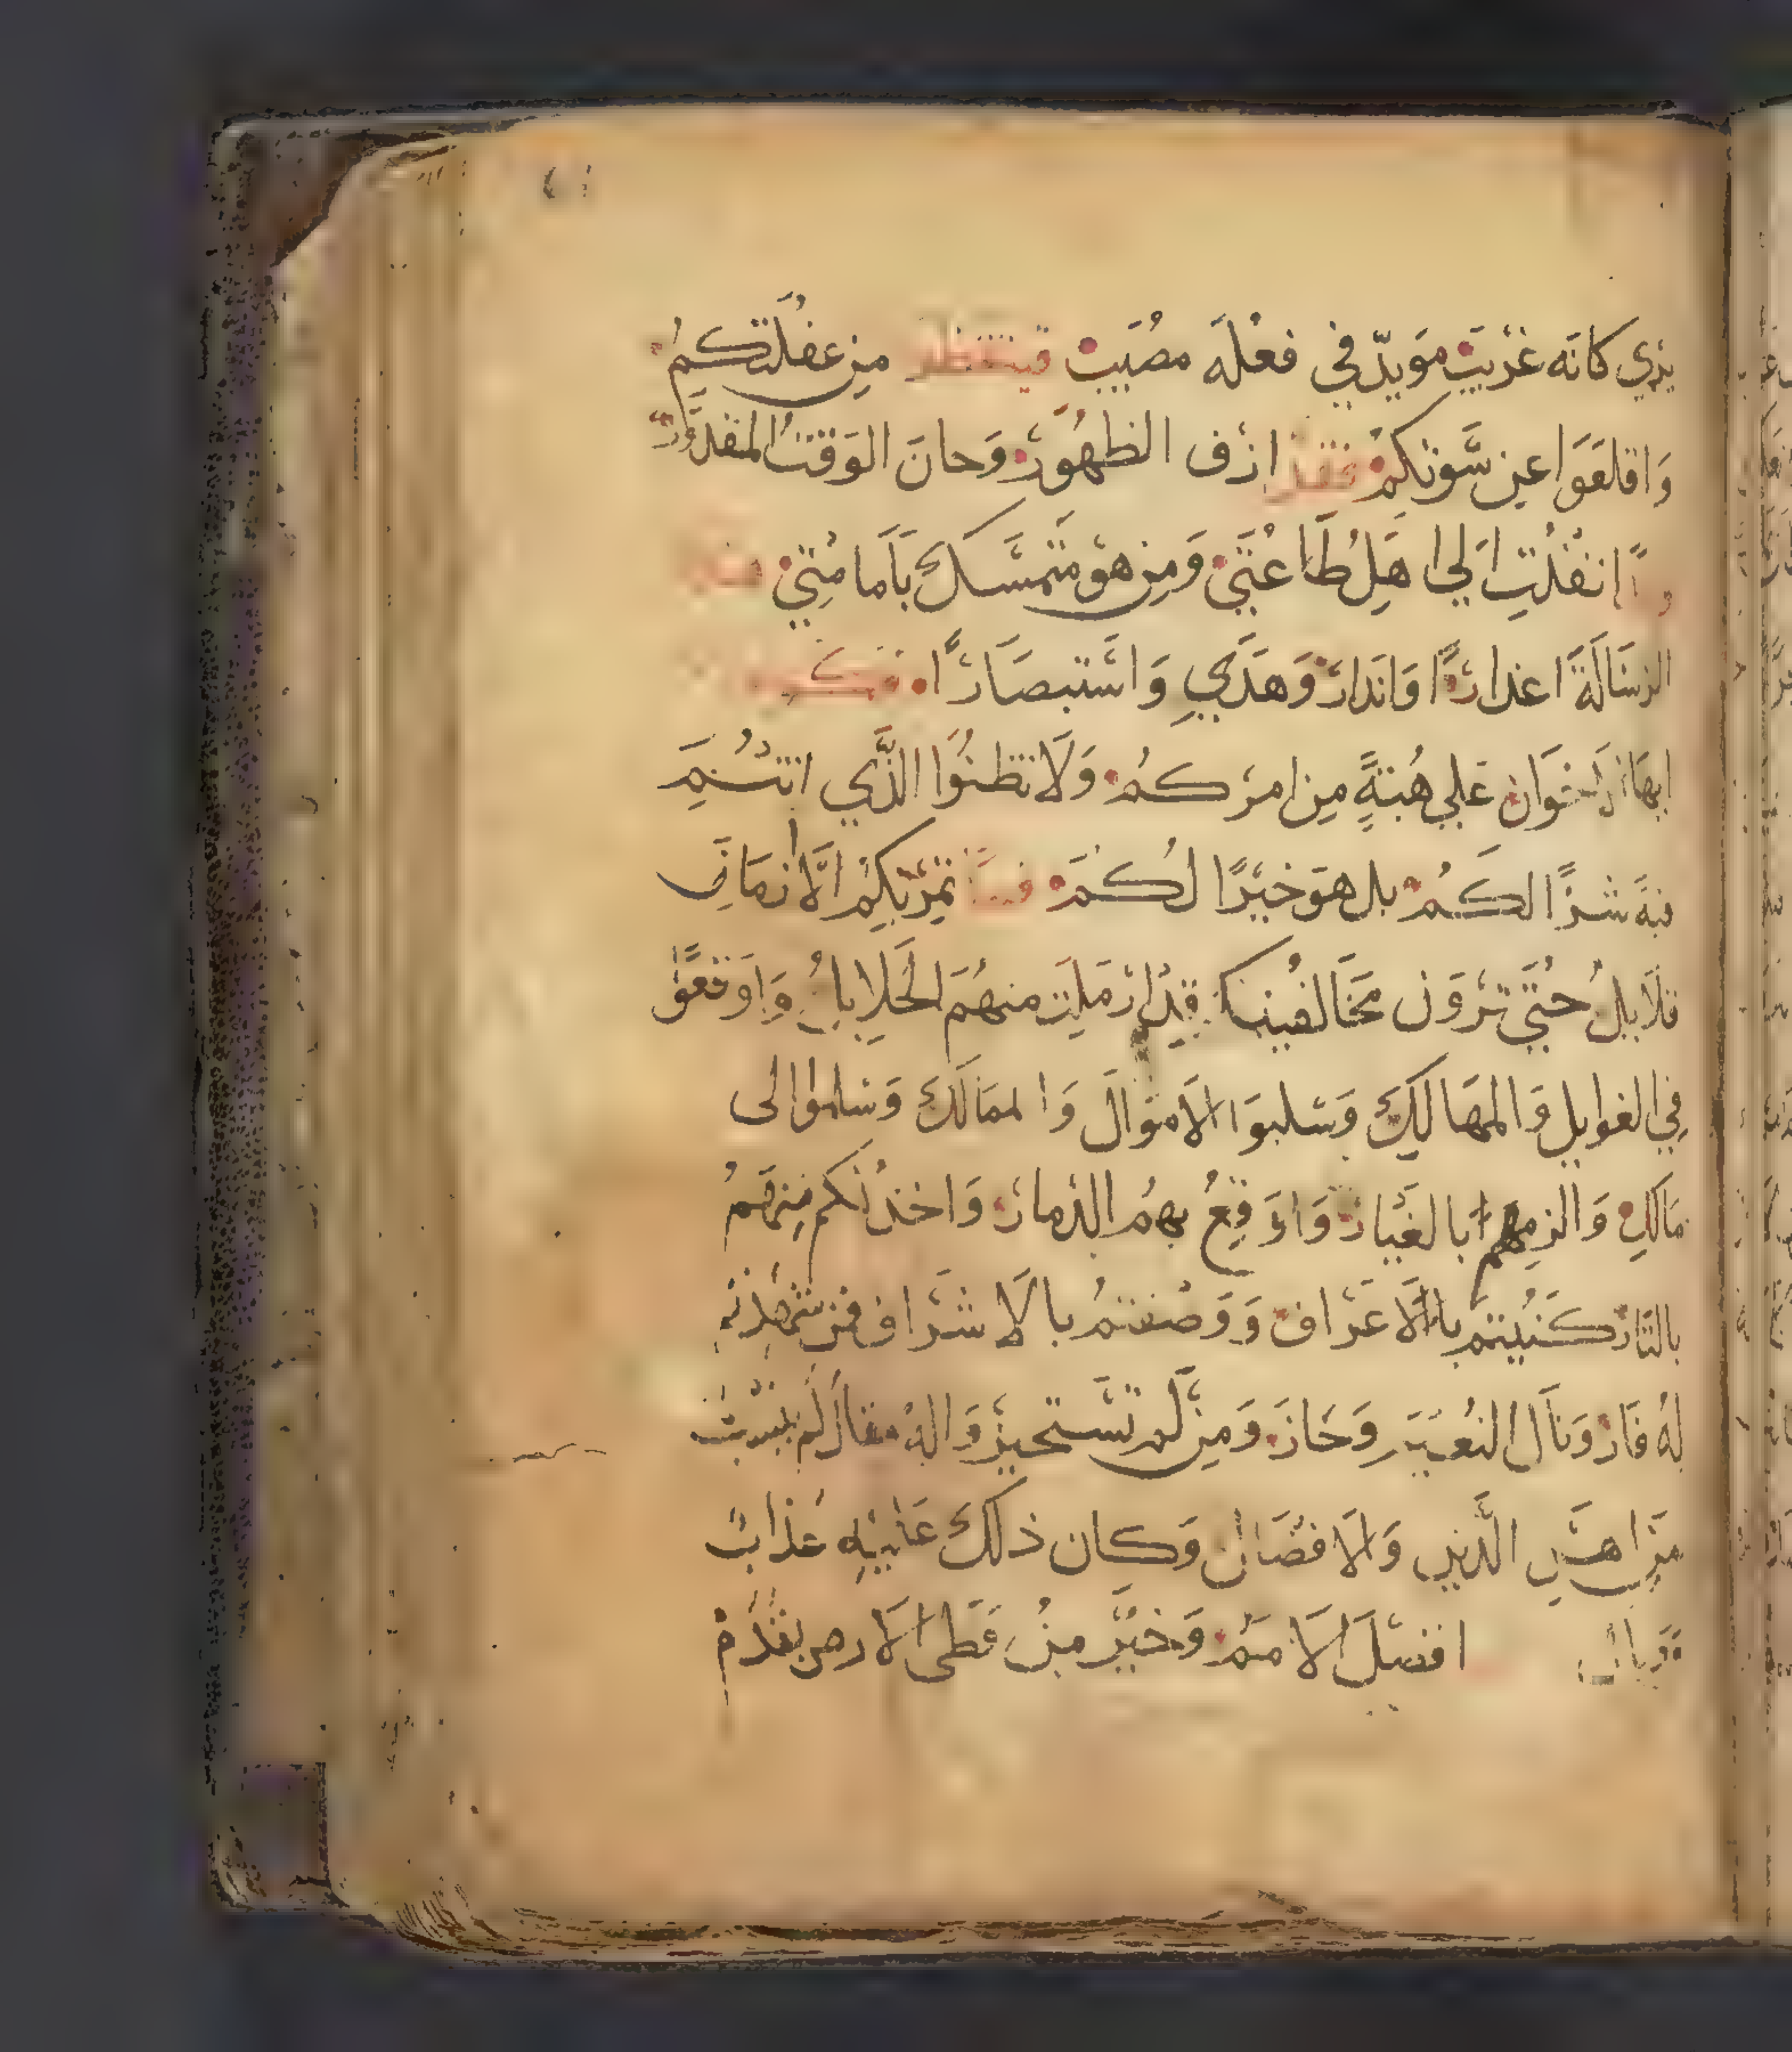 يري كانه غريب مويد في فعله مصيب من غفلتكم
واقلعوا عن سوتكم فقد ازف الظهور وحان الوقت المقدور
انفذت الى اهل طاعتي ومن هو متمسك بامامتي هذه
الرسالة اعذارًا وانذار وهدي واستبصارًا فكونوا
ايها الاخوان علي هبة من امركم ولا تظنوا الذي انتم
فيه شرًا لكم بل هو خيرًا لكم فما تمر بكم الا زمان
قلايل حتي ترون مخالفينكم قد ارملت منهم الحلايل واوقعو
في الغوايل والمهالك وسلبوا الاموال والممالك وسلموا الى
مالك والزمهم بالغيار واوقع بهم الدمار واخذ لكم منهم
بالثار كنيتم بالاعراف ووصفتم بالاشراف فمن شهدته
له فاز ونال النعيم وحاز ومن لم تستجيزواله مقال لم يثبت
من اهل الدين والافضال وكان ذلك عليه عذاب
ووبال افضل الامم وخير من وطى الارض بقدم